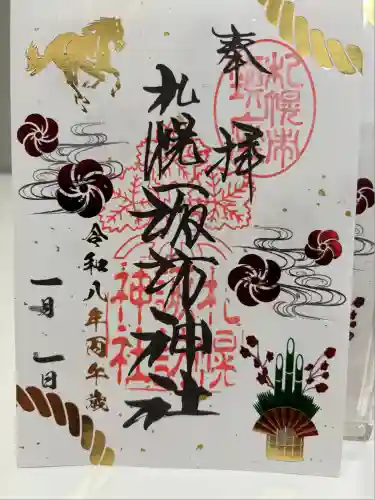 奉拝
札幌市
札幌諏訪神社
札幌
諏訪
神社
令和八年丙午歳
一月一日